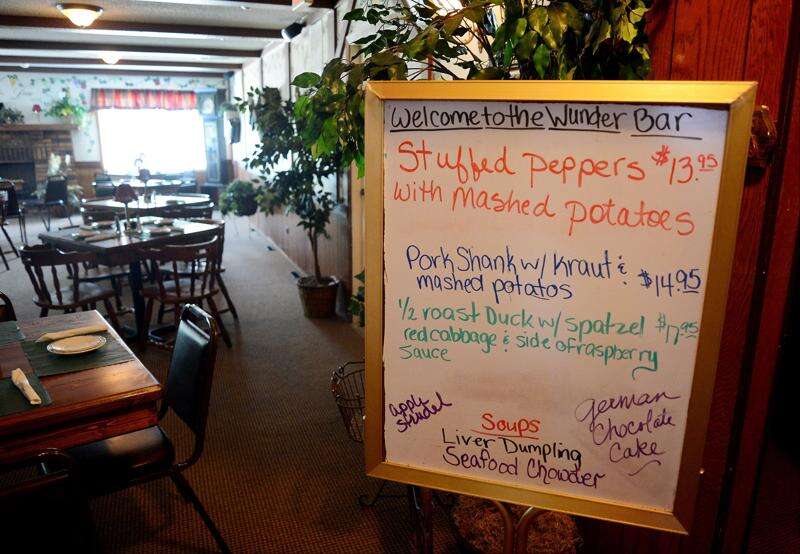 Welcome to the Wunder Bar
Stuffed peppers $13.95
with Mashed potatoes
Pork Shank w/ Kraut &
mashed potatos $14.95
1/2 roast Duck w/ spatzel $17.95
red cabbage & side of raspberry
sauce
apple strudel
German
Chocolate
Cake
Soups
Liver Dumpling
Seafood Chowder